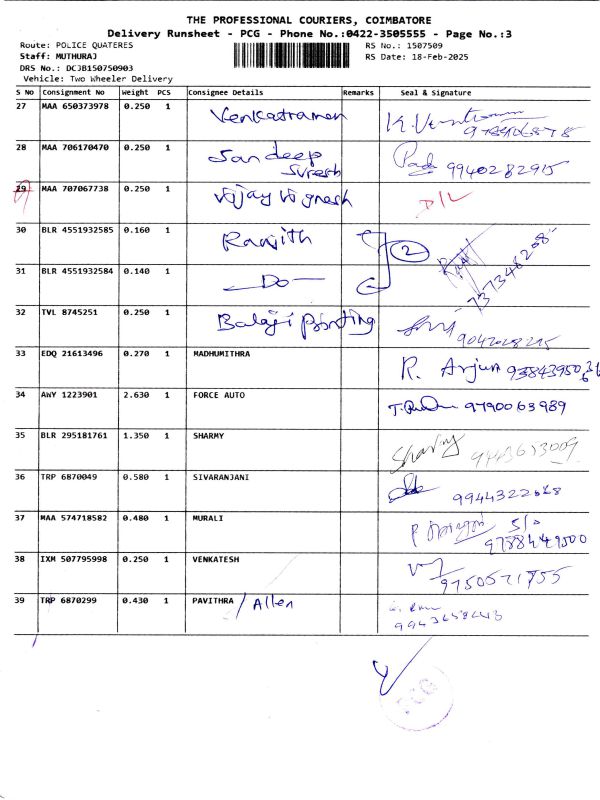 THE PROFESSIONAL COURIERS, COIMBATORE
Delivery Runsheet - PCG - Phone No.:0422-3505555 - Page No.:3
Route: POLICE QUATERES RS No.: 1507509
Staff: MUTHURAJ RS Date: 18-Feb-2025
DRS No.: DCJB150750903
Vehicle: Two Wheeler Delivery
S No Consignment No Weight PCS Consignee Details Remarks Seal & Signature
27 MAA 650373978 0.250 1 Venkatraman
28 MAA 706170470 0.250 1 Sandeep 9940282915
Suresh
29 MAA 707067738 0.250 1 Vijay Vignesh D/L
30 BLR 4551932585 0.160 1 Ranjith 2
31 BLR 4551932584 0.140 1 — Do — 7373468208
32 TVL 8745251 0.250 1 Balaji Printing
33 EDQ 21613496 0.270 1 MADHUMITHRA R. Arjun
34 AWY 1223901 2.630 1 FORCE AUTO 9790063989
35 BLR 295181761 1.350 1 SHARMY Sharmy
36 TRP 6870049 0.580 1 SIVARANJANI
37 MAA 574718582 0.480 1 MURALI S/o
38 IXM 507795998 0.250 1 VENKATESH
39 TRP 6870299 0.430 1 PAVITHRA / Allen
PCG